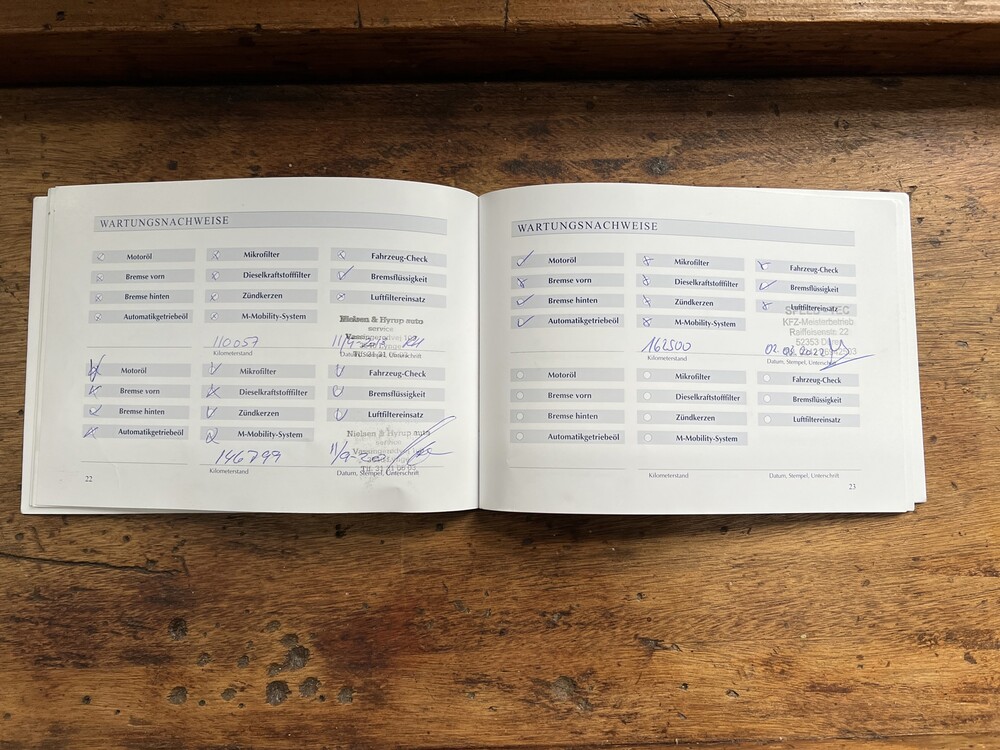 WARTUNGSNACHWEISE
Motoröl Mikrofilter Fahrzeug-Check
Bremse vorn Dieselkraftstofffilter Bremsflüssigkeit
Bremse hinten Zündkerzen Luftfiltereinsatz
Automatikgetriebeöl M-Mobility-System
Nielsen & Hyrup auto
service
110057
Kilometerstand Datum, Stempel, Unterschrift
Motoröl Mikrofilter Fahrzeug-Check
Bremse vorn Dieselkraftstofffilter Bremsflüssigkeit
Bremse hinten Zündkerzen Luftfiltereinsatz
Automatikgetriebeöl M-Mobility-System
Nielsen & Hyrup auto
146799
Kilometerstand Datum, Stempel, Unterschrift
22
WARTUNGSNACHWEISE
Motoröl Mikrofilter Fahrzeug-Check
Bremse vorn Dieselkraftstofffilter Bremsflüssigkeit
Bremse hinten Zündkerzen Luftfiltereinsatz
Automatikgetriebeöl M-Mobility-System
KFZ-Meisterbetrieb
Raiffeisenstr. 22
52353
162500 02.05.2022
Kilometerstand Datum, Stempel, Unterschrift
Motoröl Mikrofilter Fahrzeug-Check
Bremse vorn Dieselkraftstofffilter Bremsflüssigkeit
Bremse hinten Zündkerzen Luftfiltereinsatz
Automatikgetriebeöl M-Mobility-System
Kilometerstand Datum, Stempel, Unterschrift
23